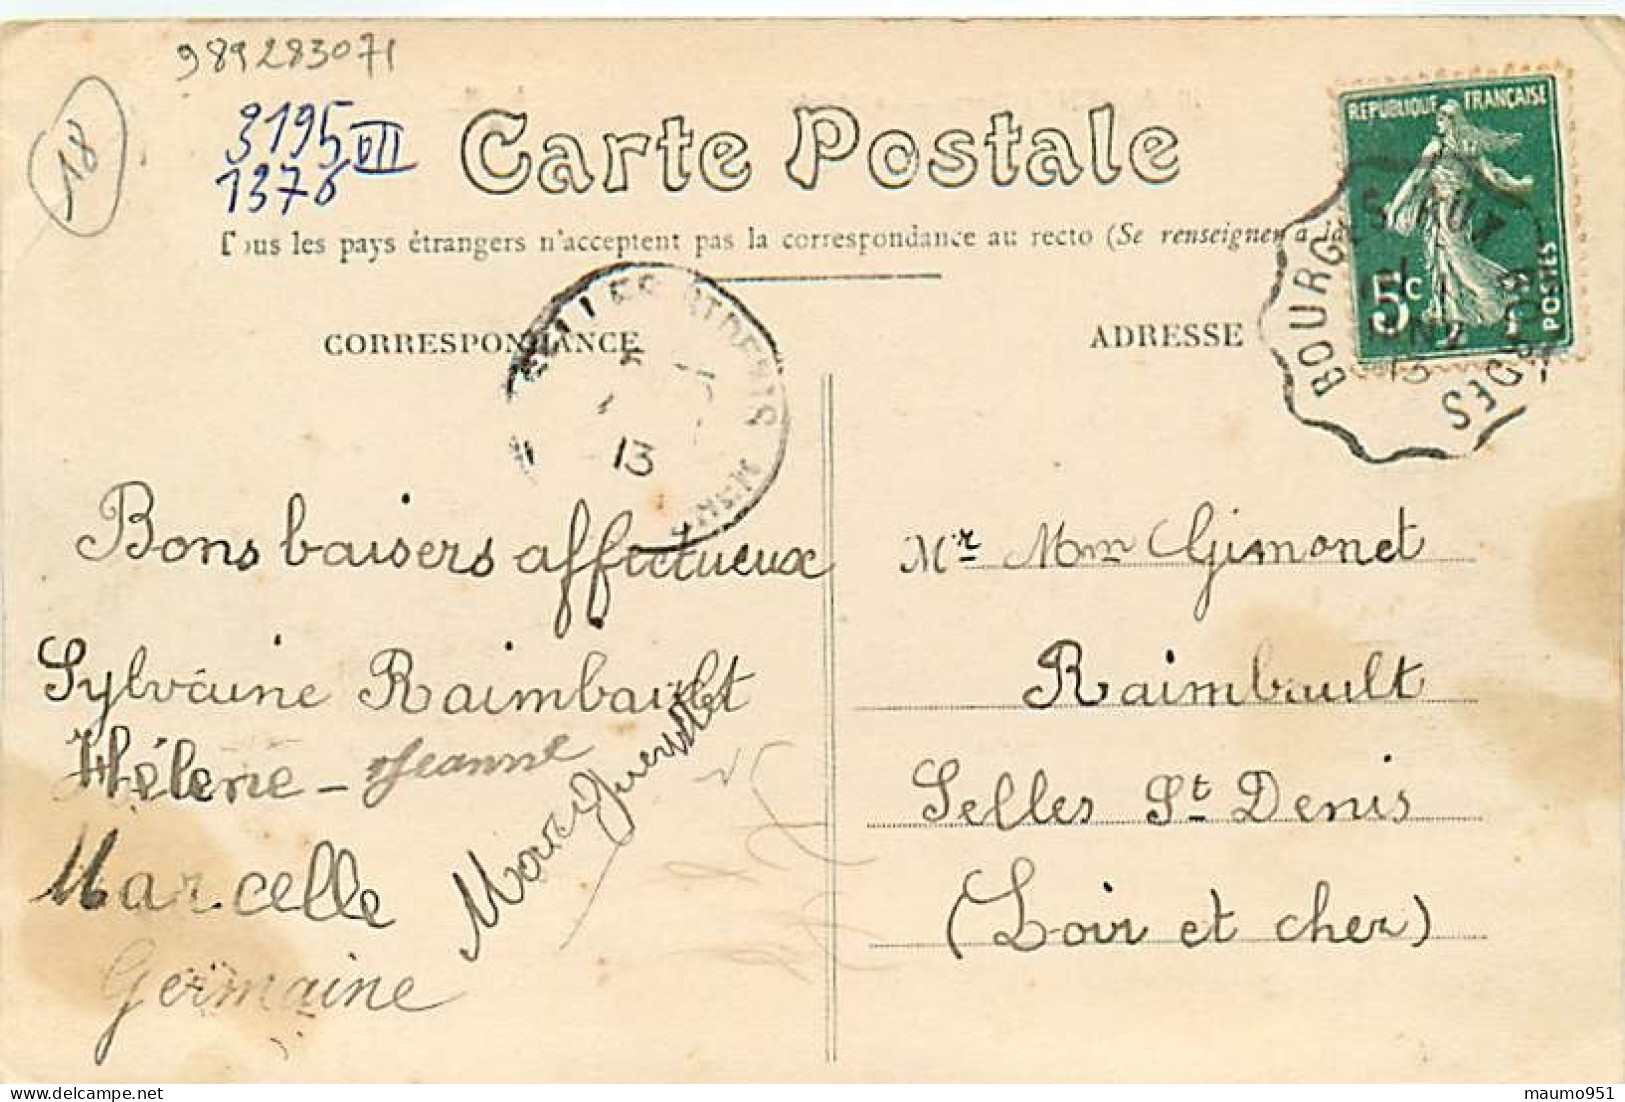 989283071
18
3195 VII
1376
Carte Postale
Tous les pays étrangers n'acceptent pas la correspondance au recto (Se renseigner à la
REPUBLIQUE FRANÇAISE
5c
POSTES
BOURGES
SELLES-ST DENIS
13
CORRESPONDANCE
ADRESSE
Bons baisers affectueux
Sylvaine Raimbault
Hélène - Jeanne
Marguerite
Marcelle
Germaine
Mr Mm Gimonet
Raimbault
Selles St Denis
(Loir et cher)
maumo951